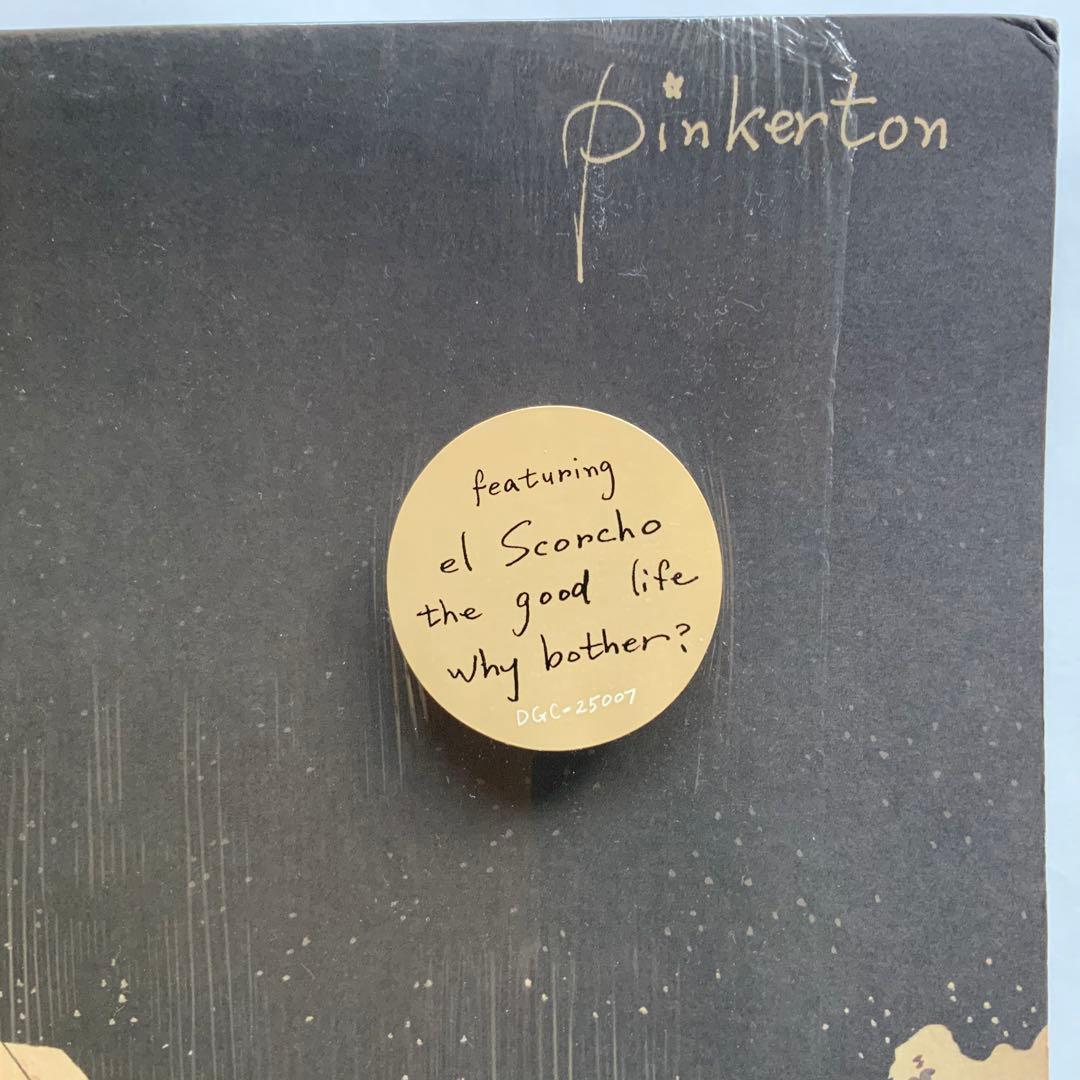 pinkerton
featuring
el Scorcho
the good life
why bother?
DGC-25007